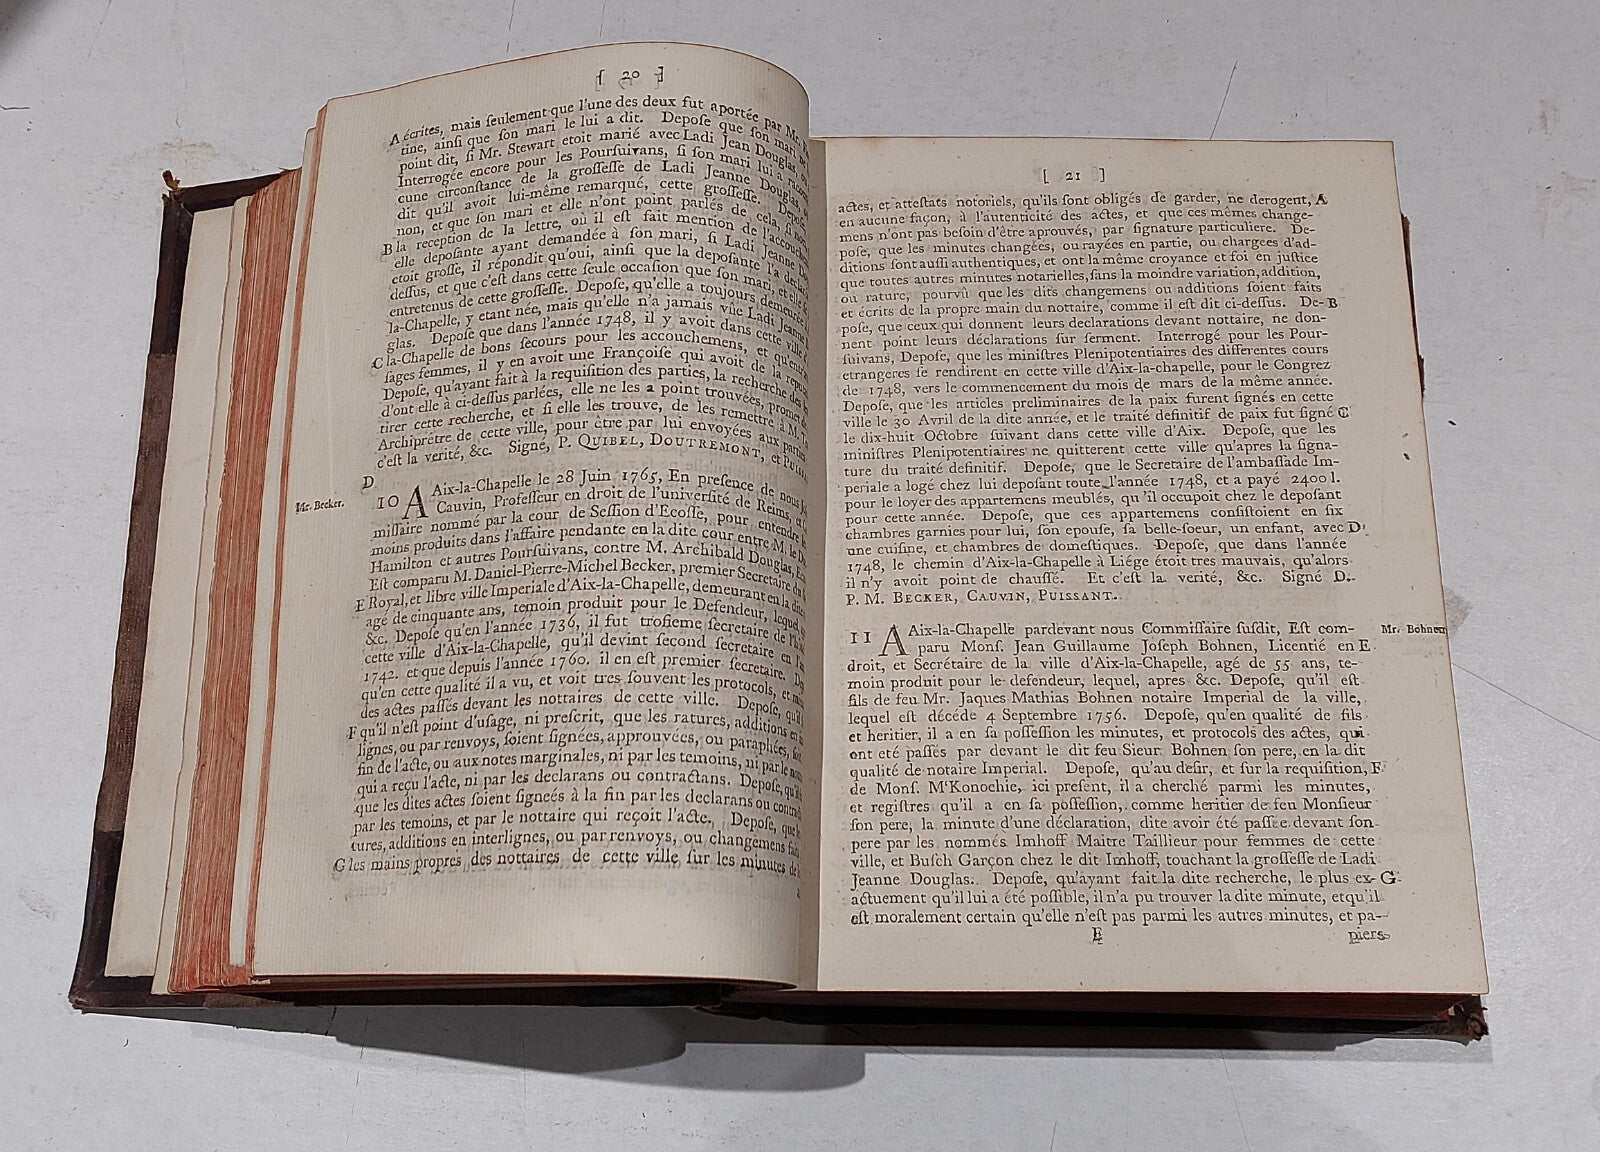 [ 20 ]
A écrites, mais ſeulement que l'une des deux fut aportée par Mr.
tine, ainſi que ſon mari le lui a dit. Depoſe que ſon mari
point dit, ſi Mr. Stewart etoit marié avec Ladi Jean Douglas,
Interrogée encore pour les Pourſuivans, ſi ſon mari lui a
cune circonſtance de la groſſeſſe de Ladi Jeanne Douglas,
dit qu'il avoit lui-même remarqué, cette groſſeſſe. Depoſe,
non, et que ſon mari et elle n'ont point parlés de cela, ſi
B la reception de la lettre, où il eſt fait mention de
elle depoſante ayant demandée à ſon mari, ſi Ladi Jeanne
etoit groſſe, il répondit qu'oui, ainſi que la depoſante l'a
deſſus, et que c'eſt dans cette ſeule occaſion que ſon mari, et
entretenus de cette groſſeſſe. Depoſe, qu'elle a toujours demeurée
la-Chapelle, y etant née, mais qu'elle n'a jamais vûe Ladi
glas. Depoſe que dans l'année 1748, il y avoit dans cette ville
C la-Chapelle de bons ſecours pour les accouchemens, et qu'entre
ſages femmes, il y en avoit une Françoiſe qui avoit de la
Depoſe, qu'ayant fait à la requiſition des parties, la recherche des
d'ont elle à ci-deſſus parlées, elle ne les a point trouvées, promet
tirer cette recherche, et ſi elle les trouve, de les remettre à M.
Archiprétre de cette ville, pour être par lui envoyées aux parties
c'eſt la verité, &c. Signé, P. QUIBEL, DOUTREMONT, et
D
Mr. Becker.
10 A Aix-la-Chapelle le 28 Juin 1765, En preſence de nous
Cauvin, Profeſſeur en droit de l'univerſité de Reims,
miſſaire nommé par la cour de Seſſion d'Ecoſſe, pour entendre
moins produits dans l'affaire pendante en la dite cour entre M. le
Hamilton et autres Pourſuivans, contre M. Archibald Douglas,
Eſt comparu M. Daniel-Pierre-Michel Becker, premier Secretaire du
E Royal, et libre ville Imperiale d'Aix-la-Chapelle, demeurant en la
agé de cinquante ans, temoin produit pour le Defendeur,
&c. Depoſe qu'en l'année 1736, il fut troſieme ſecretaire de
cette ville d'Aix-la-Chapelle, qu'il devint ſecond ſecretaire en
1742. et que depuis l'année 1760. il en eſt premier ſecretaire.
qu'en cette qualité il a vu, et voit tres ſouvent les protocols, et
des actes paſſés devant les nottaires de cette ville. Depoſe,
F qu'il n'eſt point d'uſage, ni preſcrit, que les ratures, additions
lignes, ou par renvoys, ſoient ſignées, approuvées, ou paraphées,
fin de l'acte, ou aux notes marginales, ni par les temoins, ni par le
qui a reçu l'acte, ni par les declarans ou contractans. Depoſe,
que les dites actes ſoient ſigneés à la fin par les declarans ou
par les temoins, et par le nottaire qui reçoit l'acte. Depoſe, que
tures, additions en interlignes, ou par renvoys, ou changemens
G les mains propres des nottaires de cette ville ſur les minutes
[ 21 ]
actes, et atteſtats notoriels, qu'ils ſont obligés de garder, ne derogent, A
en aucune façon, à l'autenticité des actes, et que ces mêmes change-
mens n'ont pas beſoin d'être aprouvés, par ſignature particuliere. De-
poſe, que les minutes changées, ou rayées en partie, ou chargees d'ad-
ditions ſont auſſi authentiques, et ont la même croyance et foi en juſtice
que toutes autres minutes notarielles, ſans la moindre variation, addition,
ou rature, pourvû que les dits changemens ou additions ſoient faits
et écrits de la propre main du nottaire, comme il eſt dit ci-deſſus. De- B
poſe, que ceux qui donnent leurs declarations devant nottaire, ne don-
nent point leurs déclarations ſur ſerment. Interrogé pour les Pour-
ſuivans, Depoſe, que les miniſtres Plenipotentiaires des differentes cours
etrangeres ſe rendirent en cette ville d'Aix-la-chapelle, pour le Congrez
de 1748, vers le commencement du mois de mars de la même année.
Depoſe, que les articles preliminaires de la paix furent ſignés en cette
ville le 30 Avril de la dite année, et le traité definitif de paix fut ſigné C
le dix-huit Octobre ſuivant dans cette ville d'Aix. Depoſe, que les
miniſtres Plenipotentiaires ne quitterent cette ville qu'apres la ſigna-
ture du traité definitif. Depoſe, que le Secretaire de l'ambaſſade Im-
periale a logé chez lui depoſant toute l'année 1748, et a payé 2400 l.
pour le loyer des appartemens meublés, qu'il occupoit chez le depoſant
pour cette année. Depoſe, que ces appartemens conſiſtoient en ſix
chambres garnies pour lui, ſon epouſe, ſa belle-ſoeur, un enfant, avec D
une cuiſine, et chambres de domeſtiques. Depoſe, que dans l'année
1748, le chemin d'Aix-la-Chapelle à Liége étoit tres mauvais, qu'alors
il n'y avoit point de chauſſé. Et c'eſt la verité, &c. Signé D.
P. M. BECKER, CAUVIN, PUISSANT.
11 A Aix-la-Chapelle pardevant nous Commiſſaire ſuſdit, Eſt com-
Mr. Bohnen
paru Monſ. Jean Guillaume Joſeph Bohnen, Licentié en E
droit, et Secrétaire de la ville d'Aix-la-Chapelle, agé de 55 ans, te-
moin produit pour le defendeur, lequel, apres &c. Depoſe, qu'il eſt
fils de feu Mr. Jaques Mathias Bohnen notaire Imperial de la ville,
lequel eſt décéde 4 Septembre 1756. Depoſe, qu'en qualité de fils
et heritier, il a en ſa poſſeſſion les minutes, et protocols des actes, qui
ont eté paſſés par devant le dit feu Sieur Bohnen ſon pere, en la dit
qualité de notaire Imperial. Depoſe, qu'au deſir, et ſur la requiſition, F
de Monſ. McKonochie, ici preſent, il a cherché parmi les minutes,
et regiſtres qu'il a en ſa poſſeſſion, comme heritier de feu Monſieur
ſon pere, la minute d'une déclaration, dite avoir été paſſée devant ſon
pere par les nommés Imhoff Maitre Taillieur pour femmes de cette
ville, et Buſch Garçon chez le dit Imhoff, touchant la groſſeſſe de Ladi
Jeanne Douglas. Depoſe, qu'ayant fait la dite recherche, le plus ex- G
actuement qu'il lui a été poſſible, il n'a pu trouver la dite minute, et qu'il
eſt moralement certain qu'elle n'eſt pas parmi les autres minutes, et pa-
E
piers